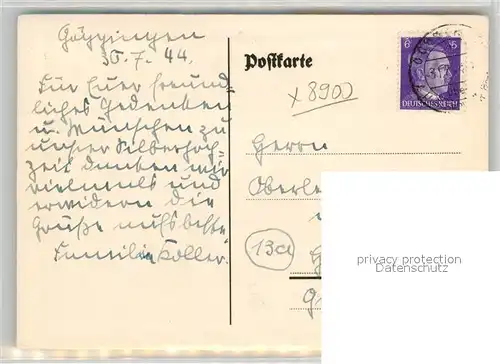 Göggingen
30.7.44.
Für Euer freund-
liches Gedenken
u. Wünschen zu
unser Silberhoch-
zeit danken wir
vielmals und
erwidern die
Grüße aufs beste
Familie Koller.
Postkarte
x8900
6 6
DEUTSCHES REICH
Herrn
Oberle
13a
privacy protection
Datenschutz